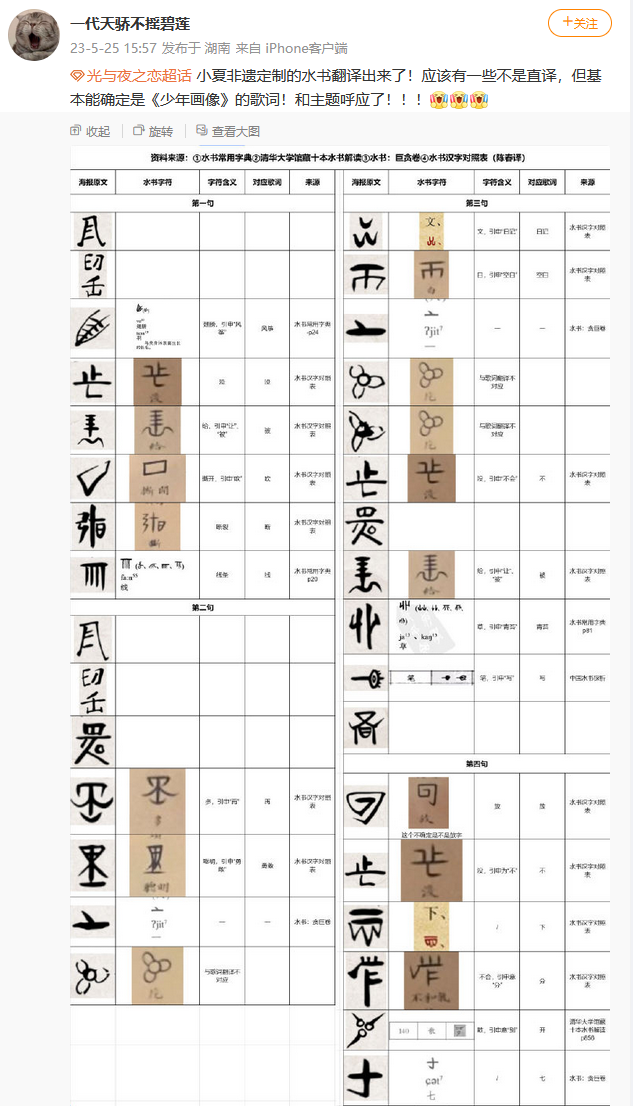 一代天骄不摇碧莲
+关注
23-5-25 15:57 发布于 湖南 来自 iPhone客户端
光与夜之恋超话 小夏非遗定制的水书翻译出来了！应该有一些不是直译，但基
本能确定是《少年画像》的歌词！和主题呼应了！！！
收起 旋转 查看大图
资料来源：①水书常用字典②清华大学馆藏十本水书解读③水书：巨贪卷④水书汉字对照表（陈春译）
海报原文 水书字符 字符含义 对应歌词 来源
第一句
翅膀，引申"风筝" 风筝 水书常用字典p24
没 没 水书汉字对照表
给，引申"让"、"被" 被 水书汉字对照表
断开，引申"砍" 水书汉字对照表
断裂 断 水书汉字对照表
线 线条 线 水书常用字典p20
第二句
多 水书汉字对照表
聪明 聪明，引申"勇敢" 勇敢 水书汉字对照表
ʔjit⁷ 一 一 水书：贪巨卷
与歌词翻译不对应
海报原文 水书字符 字符含义 对应歌词 来源
第三句
文、 文，引申"日记" 日记 水书汉字对照表
白 水书汉字对照表
ʔjit⁷ 一 一 一 水书：贪巨卷
与歌词翻译不对应
与歌词翻译不对应
没 没，引申"不会" 不 水书汉字对照表
给 给，引申"让"、"被" 被 水书汉字对照表
草 草，引申"青草" 水书常用字典p81
笔 笔，引申"写" 写 中国水书探析
第四句
故 放 放 水书汉字对照表
这个不确定是不是放字
没 没，引申为"不" 不 水书汉字对照表
下、 / 下 水书汉字对照表
不和気 不合，引申意"分" 分 水书汉字对照表
140 散，引申意"别" 开 清华大学馆藏十本水书解读p656
七 / 七 水书：贪巨卷